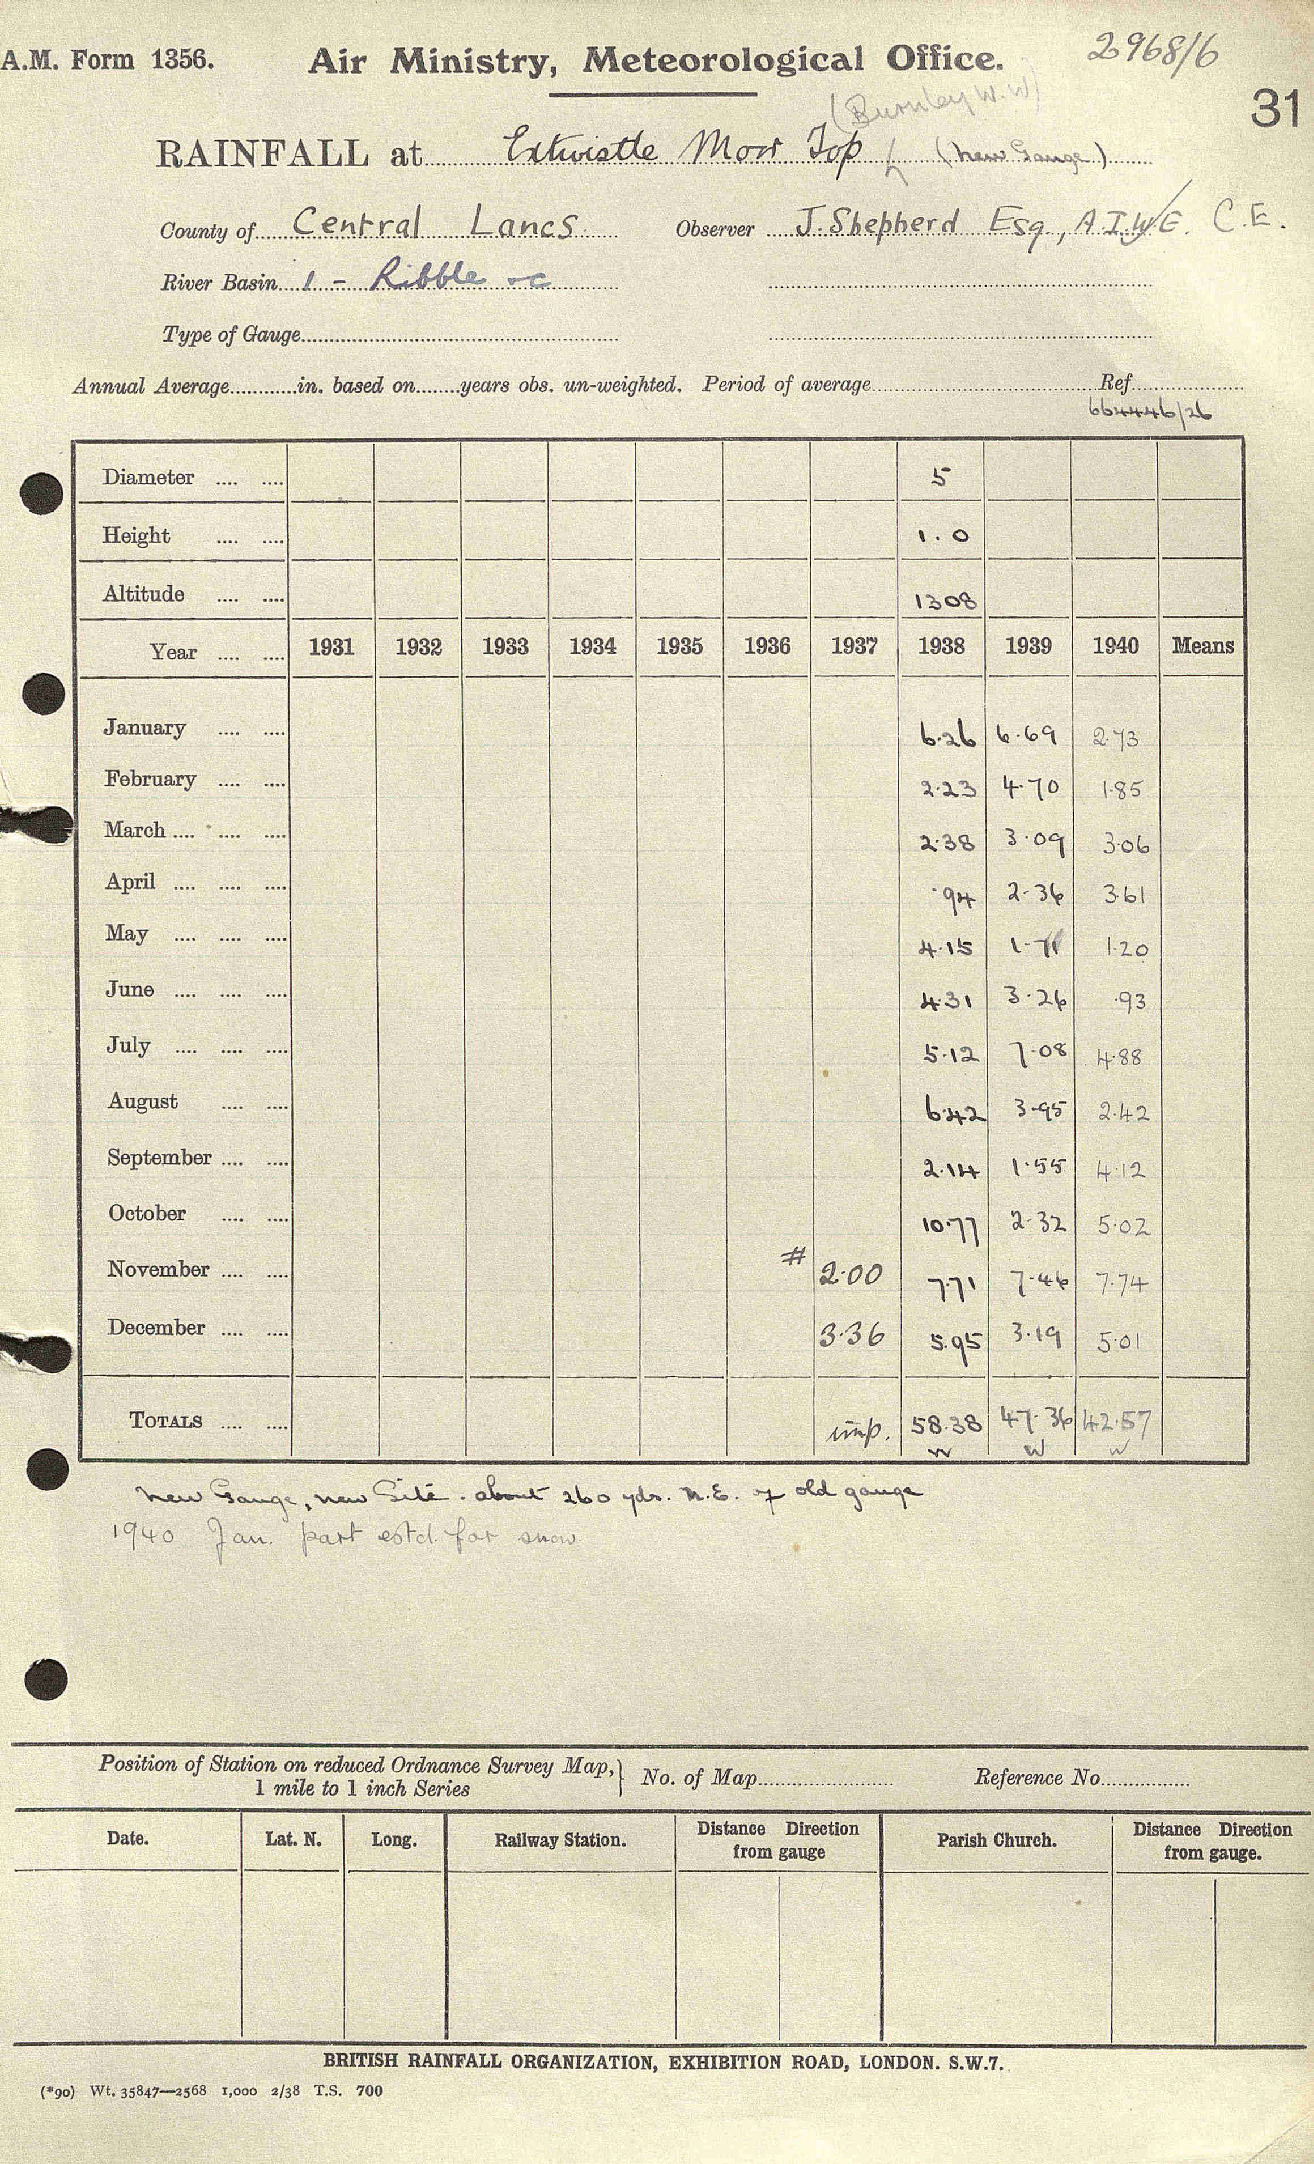 A.M. Form 1356. Air Ministry, Meteorological Office. 2968/6
(Burnley W.W)
31
RAINFALL at Extwistle Moor Top (New Gauge)
County of Central Lancs Observer J. Shepherd Esq., A.I.W.E. C.E.
River Basin 1 - Ribble
Type of Gauge
Annual Average in. based on years obs. un-weighted. Period of average Ref
664446/26
Diameter .... .... 5
Height .... .... 1.0
Altitude .... .... 1308
Year .... .... 1931 1932 1933 1934 1935 1936 1937 1938 1939 1940 Means
January .... .... 6.26 6.69 2.73
February .... .... 2.23 4.70 1.85
March .... .... .... 2.38 3.09 3.06
April .... .... .... .94 2.36 3.61
May .... .... .... 4.15 1.71 1.20
June .... .... .... 4.31 3.26 .93
July .... .... .... 5.12 7.08 4.88
August .... .... 6.42 3.95 2.42
September .... .... 2.14 1.55 4.12
October .... .... 10.77 2.32 5.02
November .... .... # 2.00 7.71 7.46 7.74
December .... .... 3.36 5.95 3.19 5.01
TOTALS .... .... imp. 58.38 47.36 42.57
w w w
New Gauge, new Site. about 260 yds. N.E. of old gauge
1940 Jan. part estd. for snow
Position of Station on reduced Ordnance Survey Map, } No. of Map Reference No.
1 mile to 1 inch Series
Date. Lat. N. Long. Railway Station. Distance Direction from gauge Parish Church. Distance Direction from gauge.
BRITISH RAINFALL ORGANIZATION, EXHIBITION ROAD, LONDON. S.W.7.
(*90) Wt. 35847—2568 1,000 2/38 T.S. 700